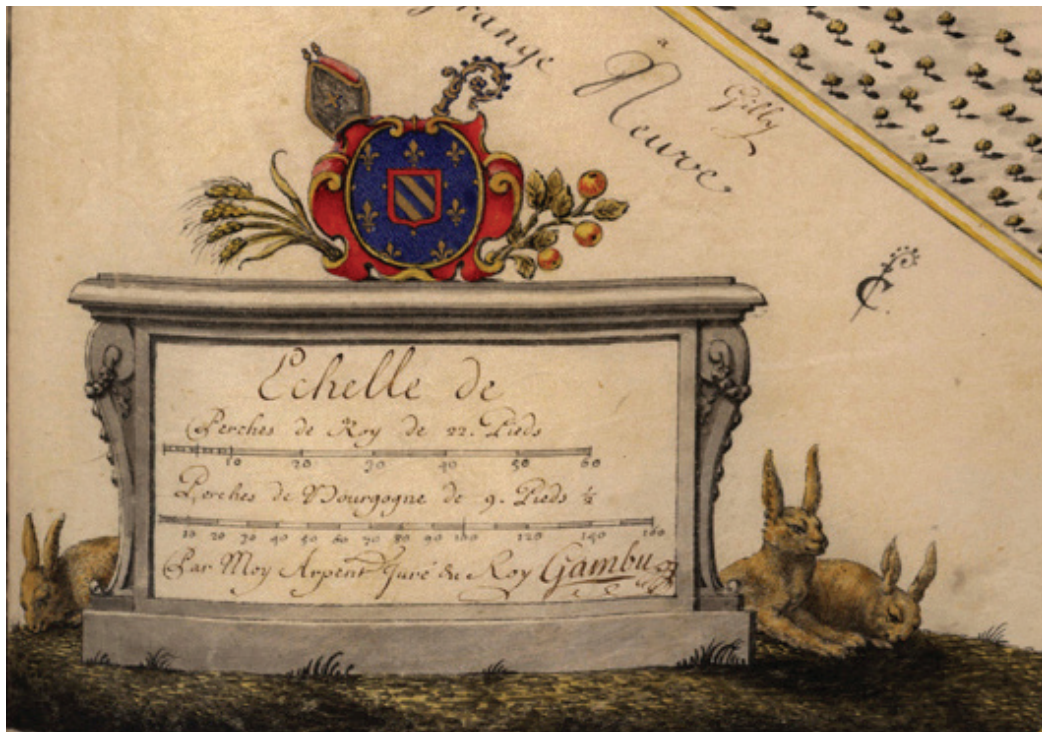 grange
Neuve
a
Gilly
C
Echelle de
Perches de Roy de 22. Pieds
10 20 30 40 50 60
Perches de Bourgogne de 9. Pieds ½
10 20 30 40 50 60 70 80 90 100 120 140 160
Par Moy Arpent. Juré du Roy Gambu